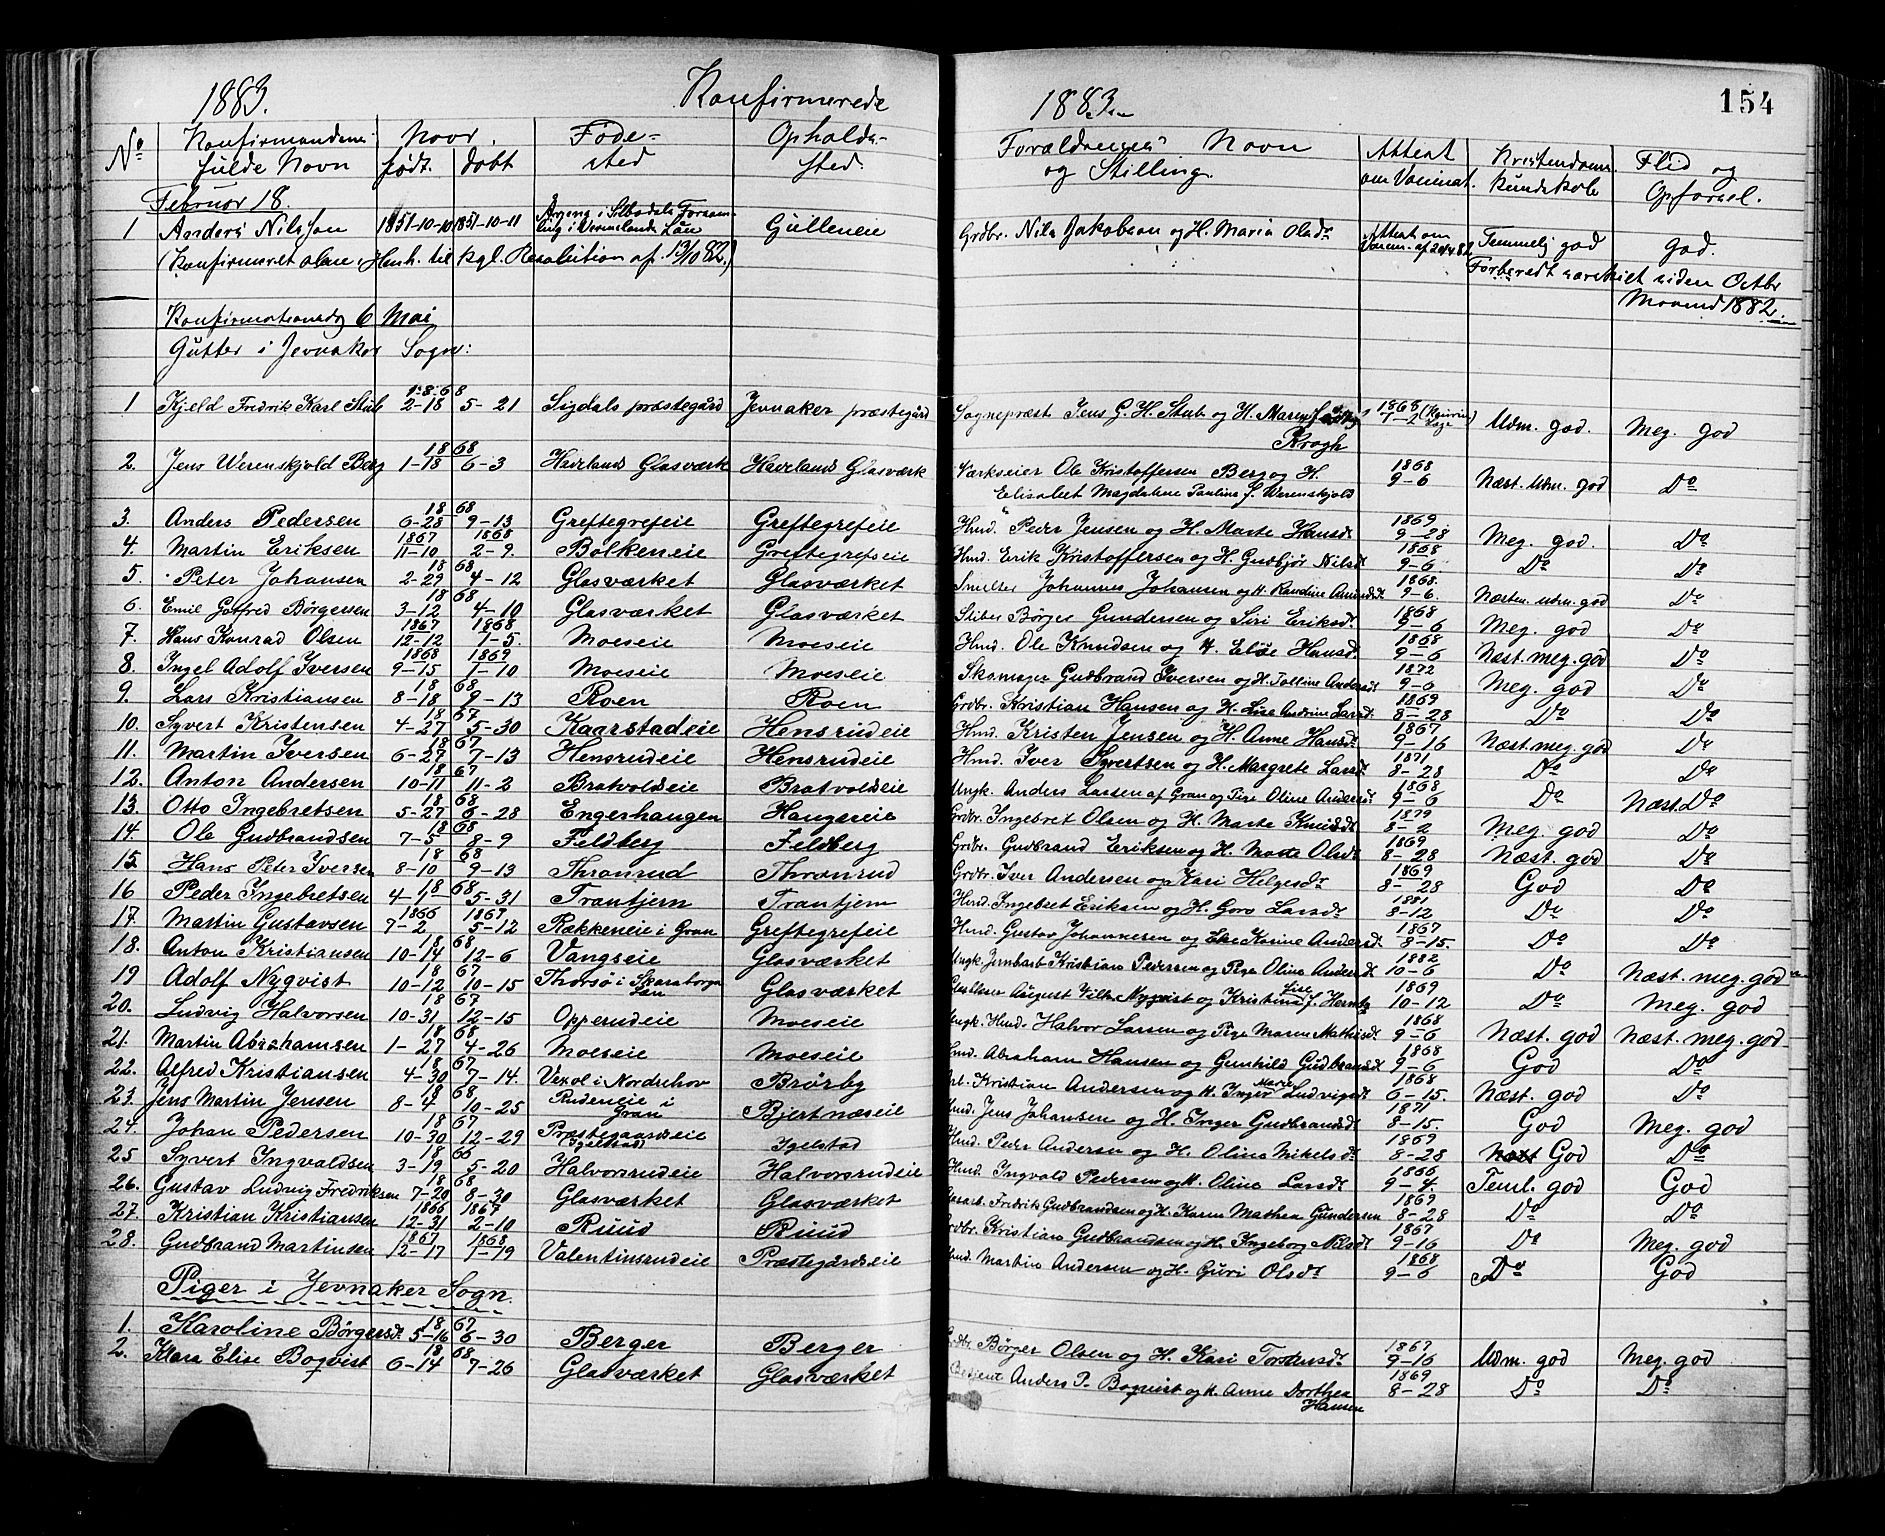 154
1883. Konfirmerede 1883.
No Konfirmandens fulde Navn Naar født. døbt Føde-sted Opholds-sted. Forældrenes Navn og Stilling. Attest om Vaccinat. Kristendoms kundskab Flid og Opførsel.
Februar 18.
1 Anders Nilsson 1851-10-10 1851-10-11 i Vermelands Län Gulleneie Grdbr. Nils Jakobson og H. Maria Olsdr Attest om Vaccin. af Temmelig god god.
(Konfirmeret alene i Henh. til kgl. Resolution af 13/10 82.) Forberedt særskilt siden Octbr
Maaned 1882.
Konfirmationsdag 6 Mai
Gutter i Jevnaker Sogn:
1 Kjeld Fredrik Karl Stub 1868 2-18 5-21 Sigdals præstegård Jevnaker præstegård Sognepræst Jens G. H. Stub og H. Maren Krogh 1868 7-2 Udm. god. Meg. god
2. Jens Werenskjold Berg 1868 1-18 6-3 Havelands Glasværk Havelands Glasværk Værkseier Ole Kristoffersen Berg og H. 1868 9-6 Næst. Udm. god Do
Elisabet Magdalene Pauline f. Werenskjold
3. Anders Pedersen 1868 6-28 9-13 Greftegrefeie Greftegrefeie Hmd. Peder Jensen og H. Marte Hansdr 1869 9-28 Meg. god. Do
4. Martin Eriksen 1867 11-10 1868 2-9. Bolkeneie Greftegrefseie Hmd. Erik Kristoffersen og H. Gudbjør Nilsdr 1868 9-6 Do Do
5. Peter Johansen 1868 2-29 4-12 Glasværket Glasværket Smelter Johannes Johansen og H. Randine Amundsdr 1868. 9-6. Næsten udm. god Do
6. Emil Gotfred Börgersen 1868 3-12 4-10 Glasværket Glasværket Sliber Børger Gundersen og Siri Eriksdr 1868 9-6 Meg. god Do
7. Hans Konrad Olsen 1867 12-12 1868 1-5. Moeseie Moeseie Hmd. Ole Knudsen og H. Elise Hansdr 1868 9-6 Næst. meg. god Do
8. Ingel Adolf Iversen 1868 9-15 1869 1-10 Moeseie Moeseie Skomager Gudbrand Iversen og H. Tolline Andersdr 1872 9-6 Meg. god Do
9. Lars Kristiansen 1868 8-18 9-13 Roen Roen Grdbr. Kristian Hansen og H. Lise Andrine Larsdr 1869 8-28 Do Do
10. Syvert Kristensen 1867 4-27 5-30 Kaarstadeie Hensrudeie Hmd. Kristen Jensen og H. Anne Hansdr 1867 9-16 Næst. meg. god Do
11. Martin Iversen 1867 6-27 7-13 Hensrudeie Hensrudeie Hmd. Iver Syvertsen og H. Margrete Larsdr 1871 8-28 Do Do
12. Anton Andersen 1867 10-11 11-2 Bratvoldseie Bratvoldseie Ungk. Anders Larsen af Gran og Pige Oline Andersdr 1868 9-6 Do Næst. Do
13. Otto Ingebretsen 1868 5-27 6-28 Engerhaugen Haugseie Grdbr. Ingebret Olsen og H. Marte Knudsdr 1879 8-2 Meg. god Do
14. Ole Gudbrandsen 1868 7-5 8-9 Feldberg Feldberg Grdbr. Gudbrand Eriksen og H. Marte Olsdr 1869 8-28 Næst. god Do
15. Hans Peter Iversen 1868 8-10 9-13 Thronrud Thronrud Grdbr. Iver Andersen og Kari Helgesdr 1869 8-28 God Do
16 Peder Ingebretsen 1868 4-1 5-31 Trantjern Trantjern Hmd. Ingebret Eriksen og H. Goro Larsdr 1881 8-12 Do Do
17. Martin Gustavsen 1866 7-2 1867 5-12 Rækkeneie i Gran Greftegrefeie Hmd. Gustav Johannesen og Else Karine Andersdr 1867 8-15. Do Do
18. Anton Kristiansen 1868 10-14 12-6 Vangseie Glasværket Ungk. Jernbarb. Kristian Pedersen og Pige Oline Andersdr 1882 10-6 Do Næst. meg. god
19 Adolf Nyqvist 1867 10-12 10-15 Thorsø i Skaraborgs Län Glasværket August Vilh. Nyqvist og Kristine Lise 1869 10-12 Do Meg. god
20. Ludvig Halvorsen 1867 10-31 12-15 Opperudeie Moeseie Ungk. Hmd. Halvor Larsen og Pige Maren Mathisdr 1868 9-6 Næst. god Næst. meg. god
21. Martin Abrahamsen 1868 1-27 4-26 Moeseie Moeseie Hmd. Abraham Hansen og Gunhild Gudbrandsdr 1868 9-6 God Do
22. Alfred Kristiansen 1867 4-30 7-14. Vexal i Norderhov Brørby Arb. Kristian Andersen og H. Inger Marie Ludvigsdr 1868 6-15. Næst. god Do
23. Jens Martin Jensen 1868 8-4 10-25 Rudeneie i Gran Bjertnæseie Hmd. Jens Johansen og H. Inger Gudbrandsdr 1871 8-15. God Meg. god
24. Johan Pedersen 1867 10-30 12-29 Præstegaardseie Igelstad Hmd. Peder Andersen og H. Olina Mikelsdr 1869 8-28 Næst God Do
25 Syvert Ingvaldsen 1866 3-19 5-20 Halvorsrudeie Halvorsrudeie Hmd. Ingvald Pedersen og H. Oline Larsdr 1866 9-4. Teml. god God
26. Gustav Ludvig Fredriksen 1868 7-20 8-30 Glasværket Glasværket Fredrik Gudbrandsen og H. Karen Mathea Gundersen 1869 8-28 Do Do
27. Kristian Kristiansen 1866 12-31 1867 2-10 Ruud Ruud Grdbr. Kristian Gudbrandsen og H. Ingeborg Nilsdr 1867 9-16 Do Meg. god
28. Gudbrand Martinsen 1867 12-17 1868 1-19 Valentinsrudeie Præstegårdseie Hmd. Martin Andersen og H. Guri Olsdr 1868 9-6 Do God
Piger i Jevnaker Sogn.
1. Karoline Børgersdr 1867 5-16 6-30 Berger Berger Grdbr. Børger Olsen og H. Kari Torstensdr 1867 9-16 Udm. god Meg. god
2. Klara Elise Boqvist 1868 6-14 7-26 Glasværket Glasværket Betjent Anders P. Boqvist og H. Anne Dorthea Hansen 1869 8-28 Do Do